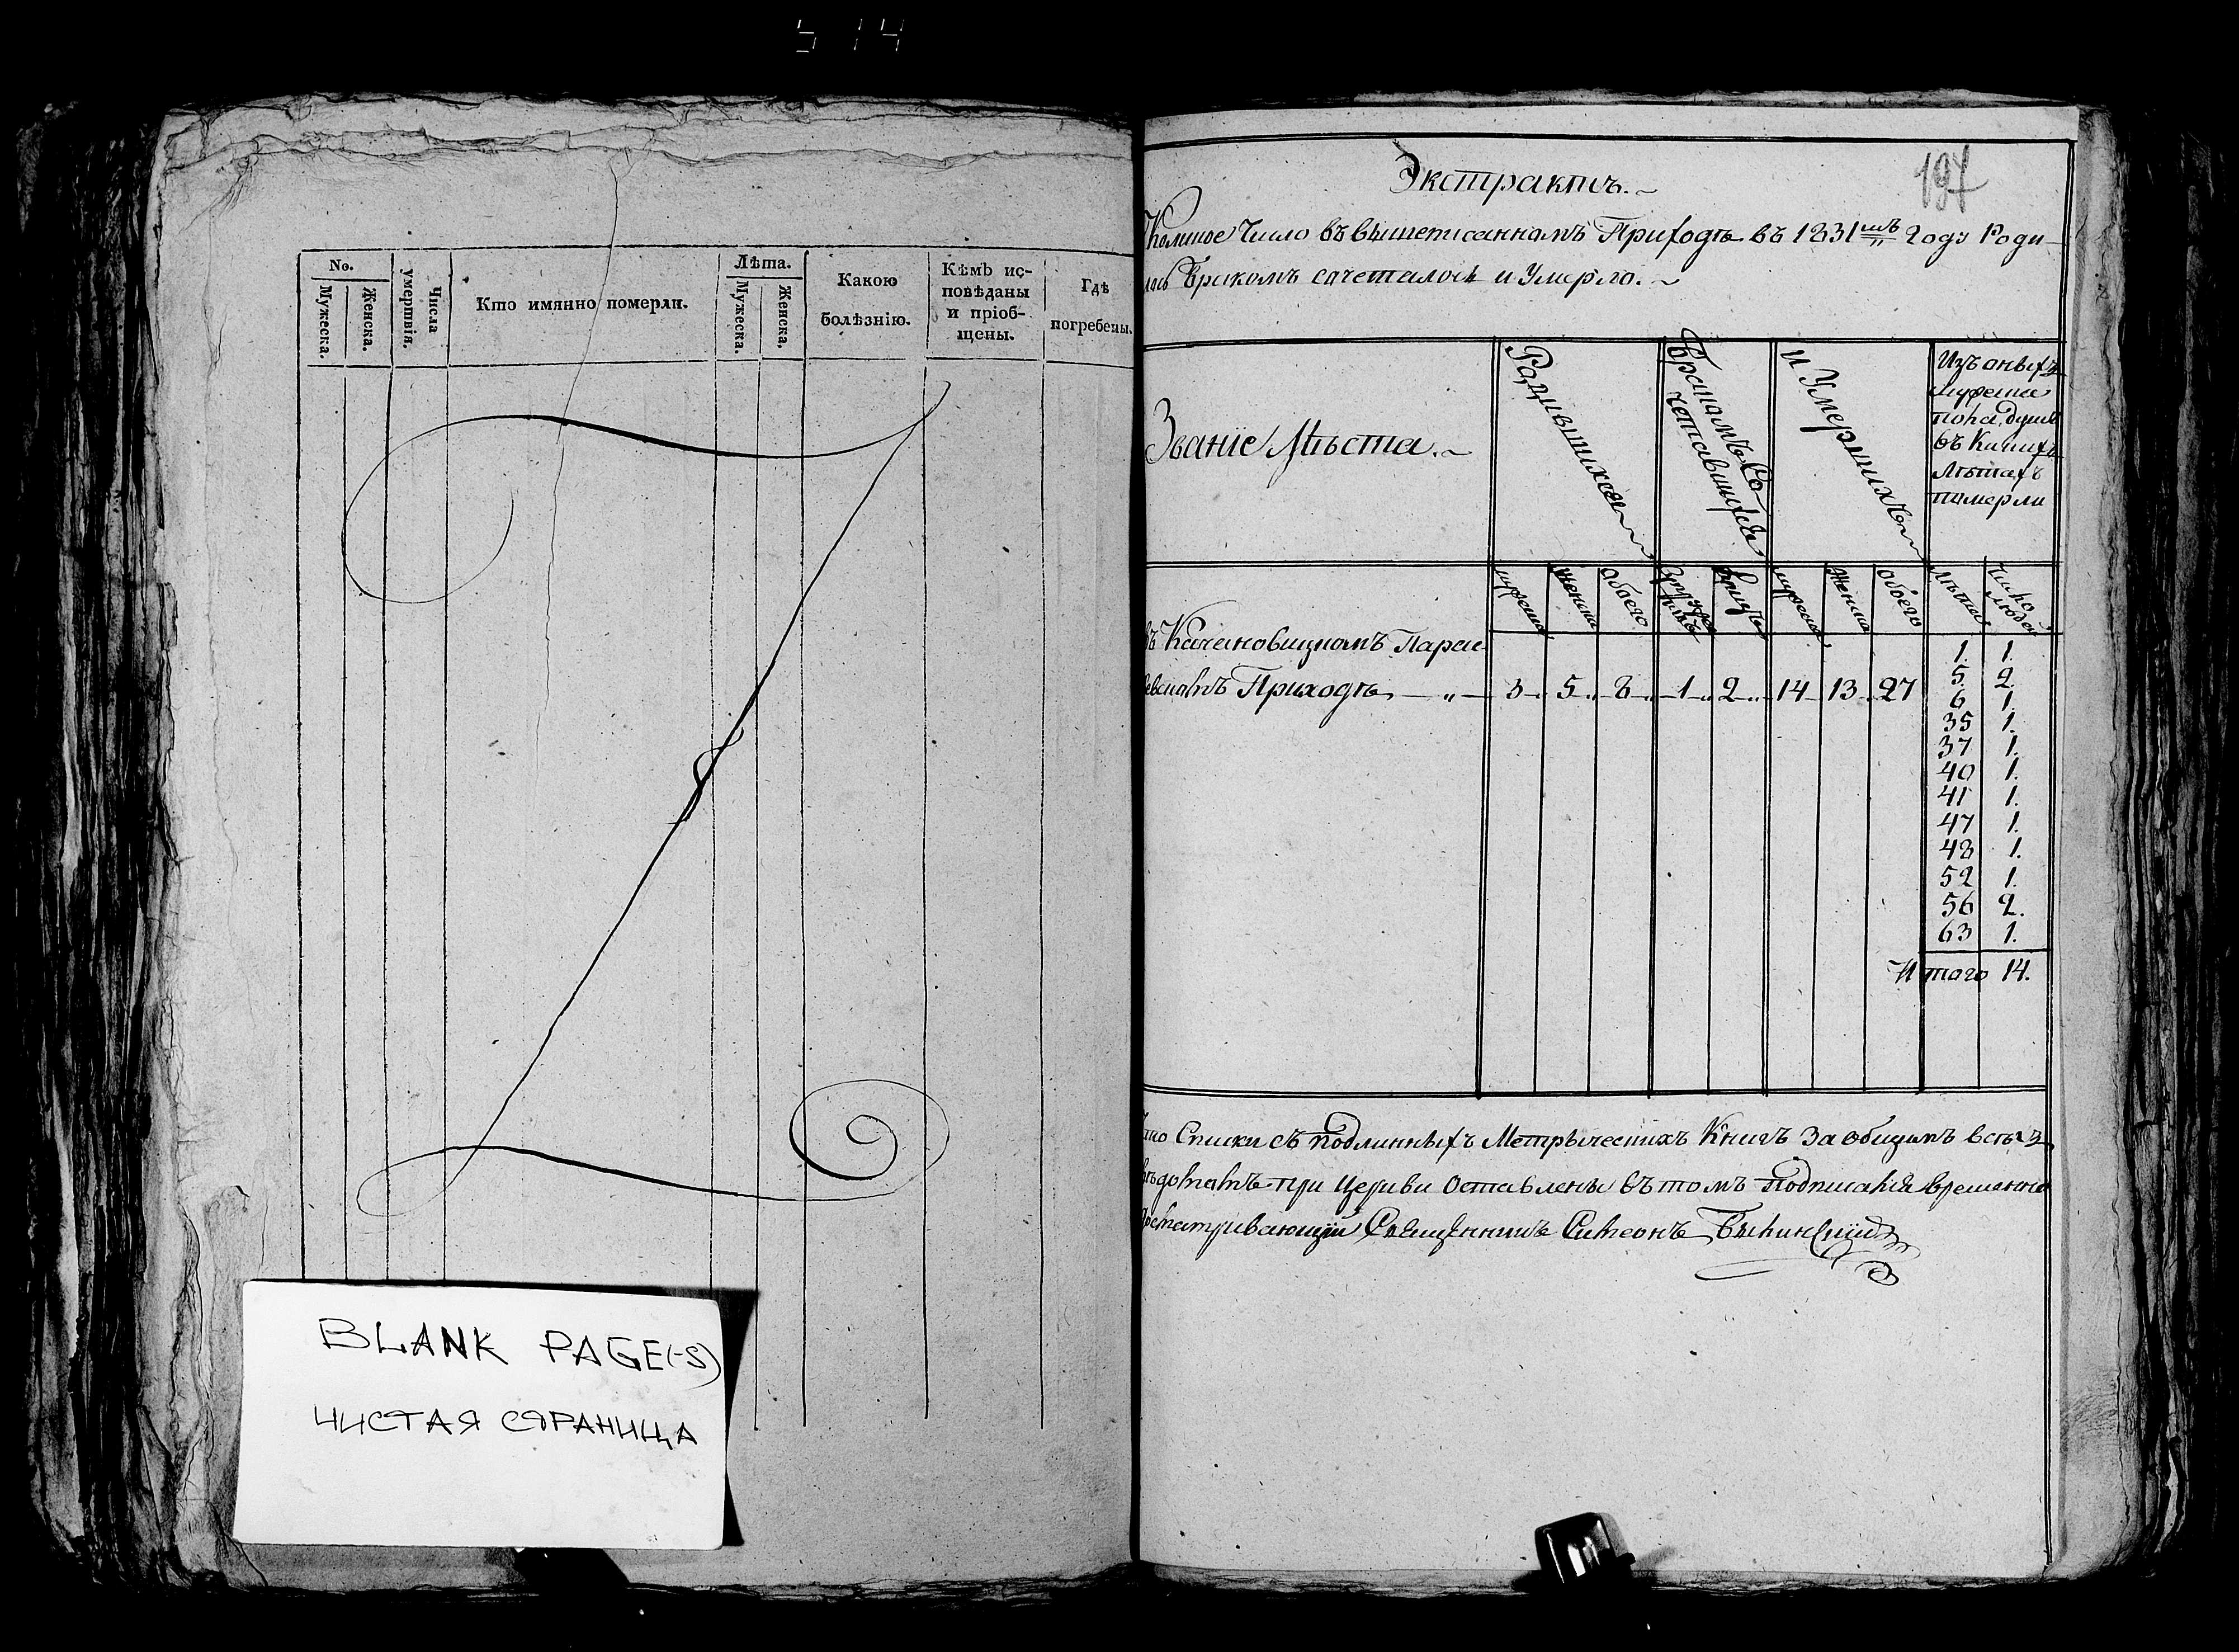 514
No.
Мужеска.
Женска.
Числа
умертвія.
Кто имянно померли.
Лѣта.
Мужеска.
Женска.
Какою
болѣзнію.
Кѣмъ ис-
повѣданы
и пріоб-
щены.
Гдѣ
погребены.
BLANK PAGE(-S)
ЧИСТАЯ СТРАНИЦА
197
Экстрактъ.
Коликое Число въ вышеписанномъ Приходѣ въ 1831мъ Году Роди-
лось Бракомъ сочеталось и Умерло.
Званіе Мѣста.
Родившихся
Бракомъ Со-
четавшихся
и Умершихъ
Изъ оныхъ
Мужеска
пола душъ
въ Какихъ
Лѣтахъ
померли
мужеска
женска
обоего
мужеска
женска
обоего
лѣта
Число
людей
въ Качановецкомъ Параске-
евскомъ Приходѣ 3 5 8 1 2 14 13 27
1. 1.
5. 2.
6 1.
35 1.
37 1.
40 1.
41 1.
47 1.
48 1.
52 1.
56 2.
63 1.
Итого 14.
Списки съ подлинныхъ Метрическихъ Книгъ За общимъ всѣхъ
при Церкви Оставлены въ томъ Подписался временно
Священникъ Симеонъ